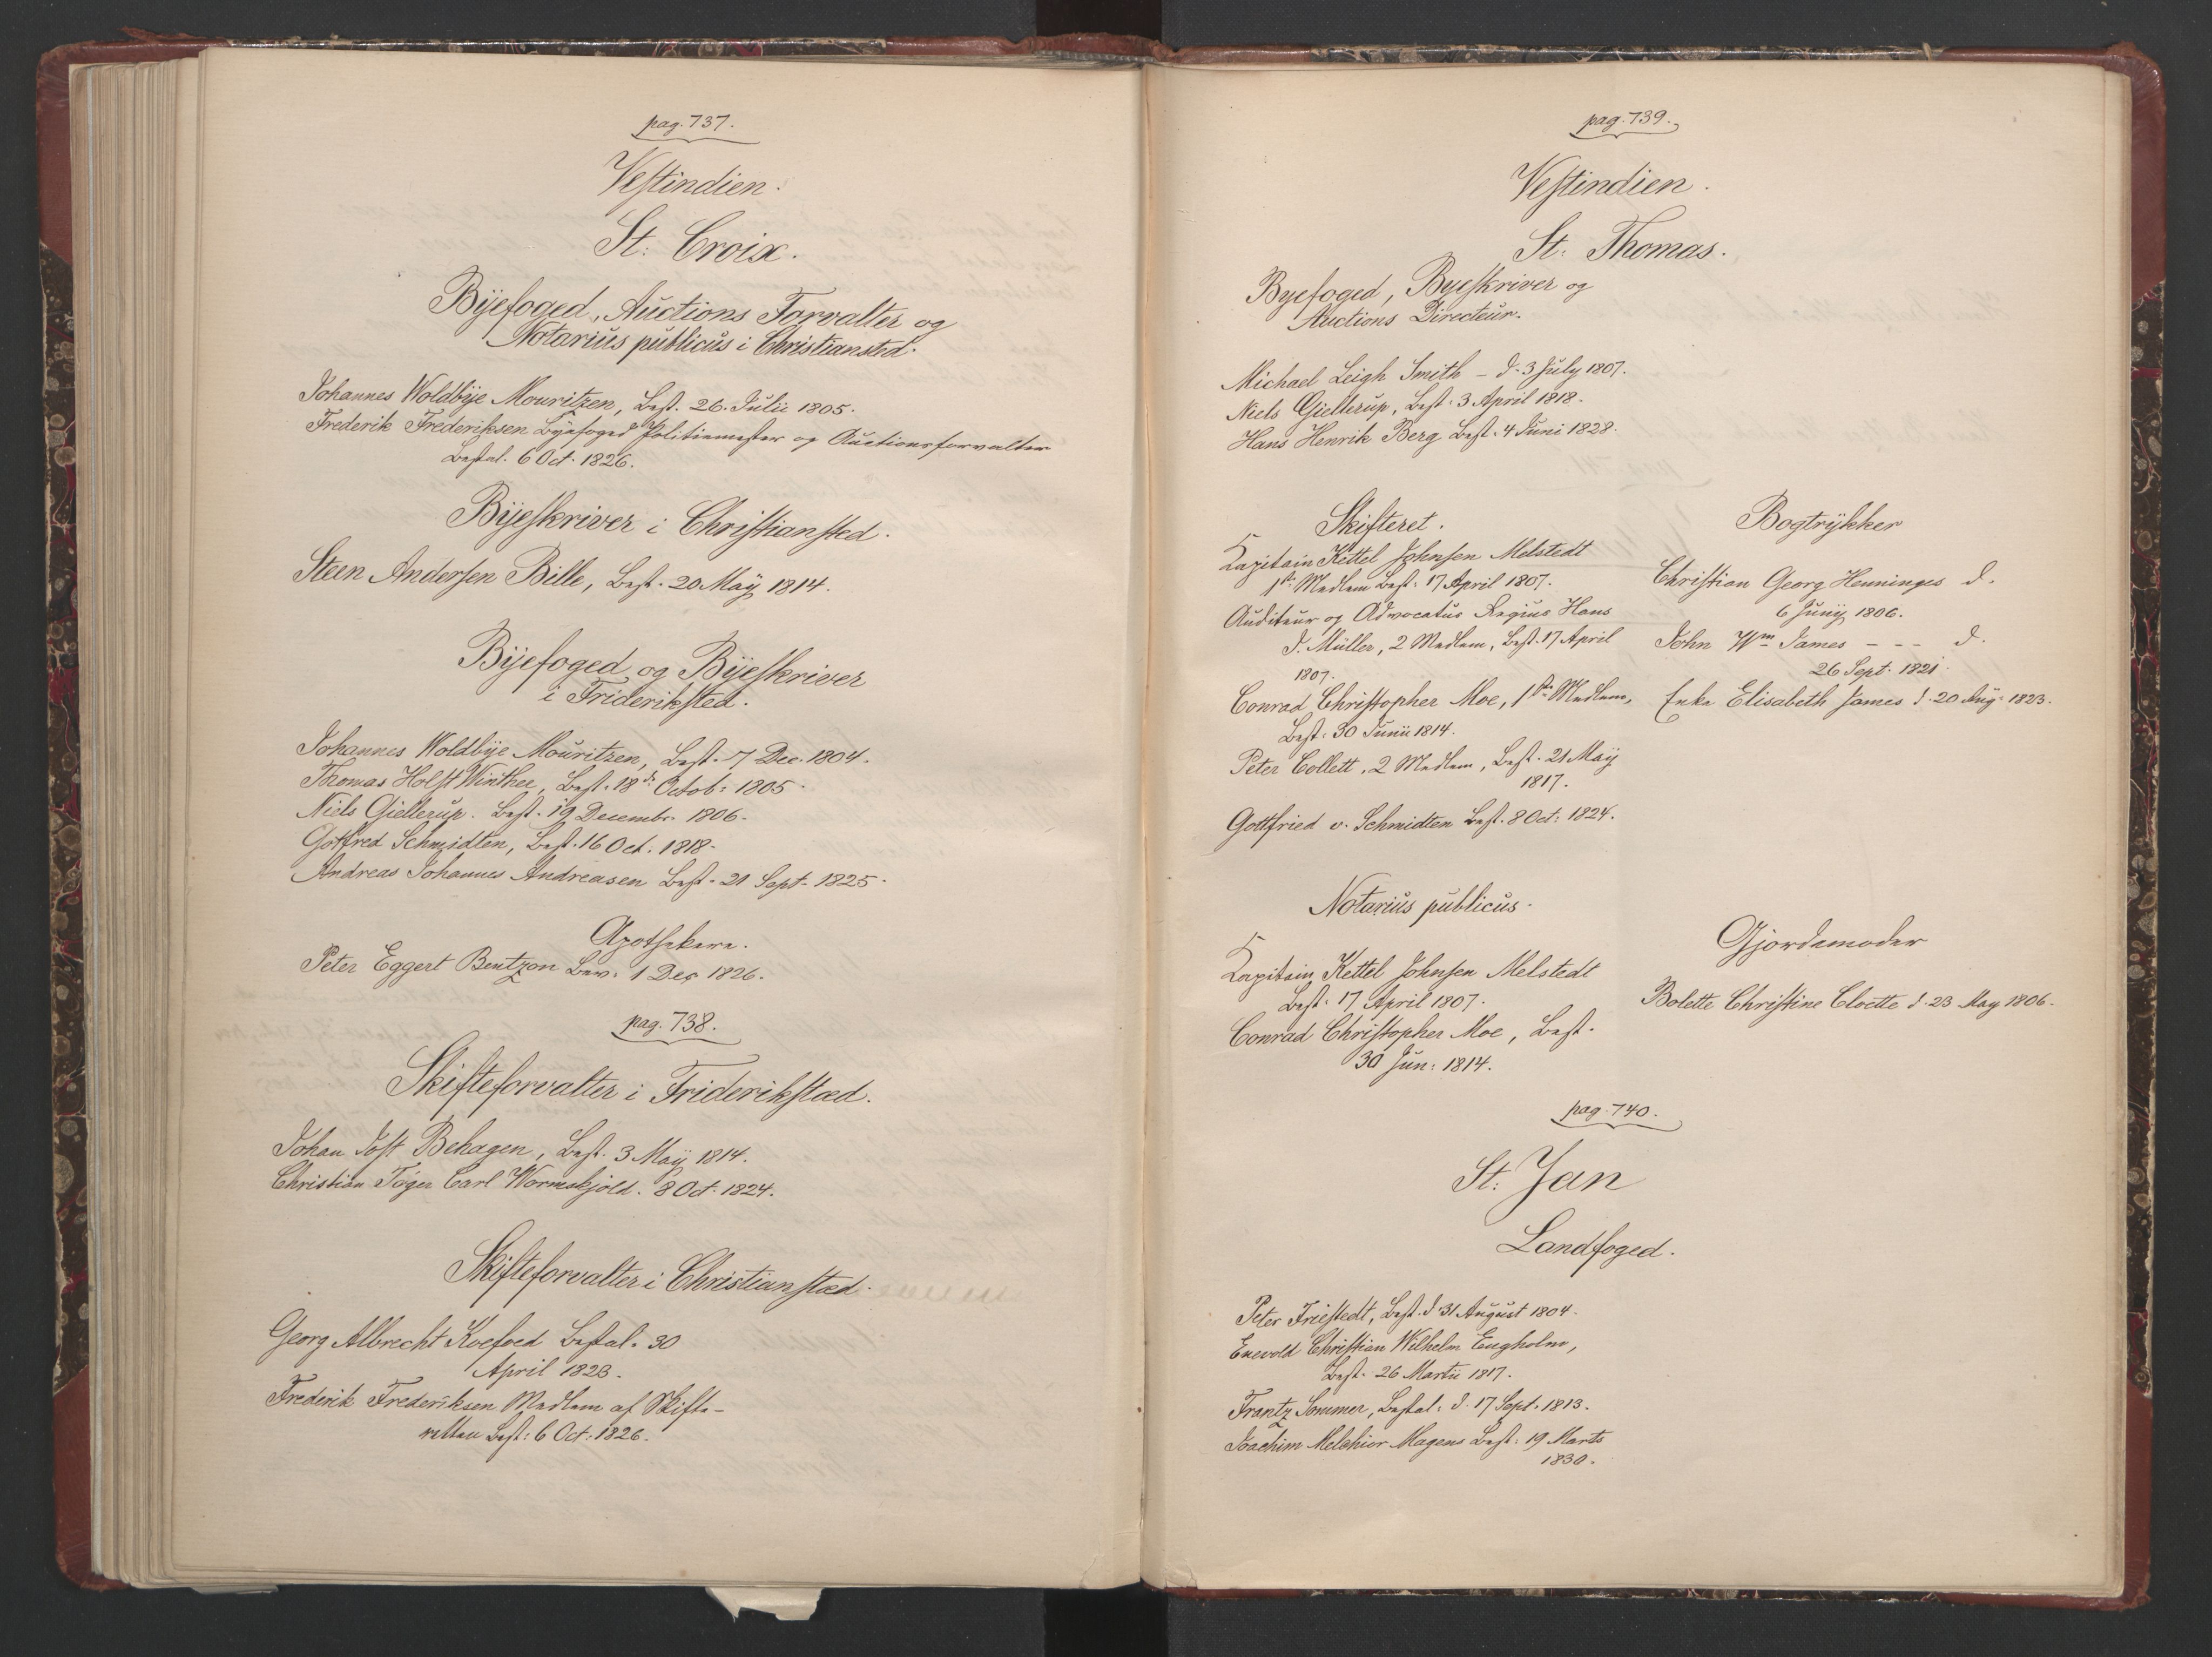 pag. 737.
Vestindien.
St: Croix.
Byefoged, Auctions Forvalter og
Notarius publicus i Christiansted.
Johannes Woldbye Mouritzen, Best. 26. Julii 1805.
Frederik Frederiksen Byefoged Politiemester og Auctionsforvalter
Bestal. 6 Oct. 1826.
Byeskriver i Christiansted.
Steen Andersen Bille, Best. 20 May 1814.
Byefoged og Byeskriver
i Frideriksted.
Johannes Woldbye Mouritzen, Best. 7 Dec. 1804.
Thomas Holst Winther, Best. 18 d. Octob: 1805.
Niels Giellerup. Best. 19 Decembr. 1806.
Gotfred Schmidten, Best. 16 Oct. 1818.
Andreas Johannes Andreasen Best. 21 Sept. 1825.
Apothekere.
Peter Eggert Bentzon Bev. 1 Dec 1826.
pag. 738.
Skifteforvalter i Friderikstæd.
Johan Jost Behagen, Best. 3 May 1814.
Christian Töger Carl Wormskjold. 8 Oct. 1824.
Skifteforvalter i Christianstæd.
Georg Albrecht Koefoed Bestal. 30
April 1823.
Frederik Frederiksen Medlem af Skifte-
retten Best: 6 Oct: 1826.
pag. 739.
Vestindien.
St: Thomas.
Byefoged, Byeskriver og
Auctions Directeur.
Michael Leigh Smith - d. 3 July 1807.
Niels Giellerup, Best. 3 April 1818.
Hans Henrik Berg Best. 4 Juni 1828.
Skifteret.
Kapitain Kettel Johnsen Melstedt
1ste Medlem Best: 17 April 1807.
Auditeur og Advocatus Regius Hans
J. Müller, 2 Medlem, Best. 17 April
1807.
Conrad Christopher Moe, 1ste Medlem,
Best: 30 Junii 1814.
Peter Collett, 2 Medlem, Best. 21 May
1817.
Gottfried v. Schmidten Best. 8 Oct: 1824.
Bogtrykker
Christian Georg Henninges d.
6 Juny 1806.
John Wm James - - - d.
26 Sept. 1821.
Enke Elisabeth James d. 20 Aug. 1823.
Notarius publicus.
Kapitain Kettel Johnsen Melstedt
Best. 17 April 1807.
Conrad Christopher Moe, Best.
30 Jun: 1814.
Gjordemoder
Bolette Christine Cloette d. 23 May 1806.
pag. 740.
St: Jan
Landfoged.
Peter Friestedt, Best. d 31 August 1804.
Enevold Christian Wilhelm Engholm,
Best. 26 Martii 1817.
Frantz Sommer, Bestal: d. 17 Sept. 1813.
Joachim Melchior Magens Best: 19 Marts
1830.